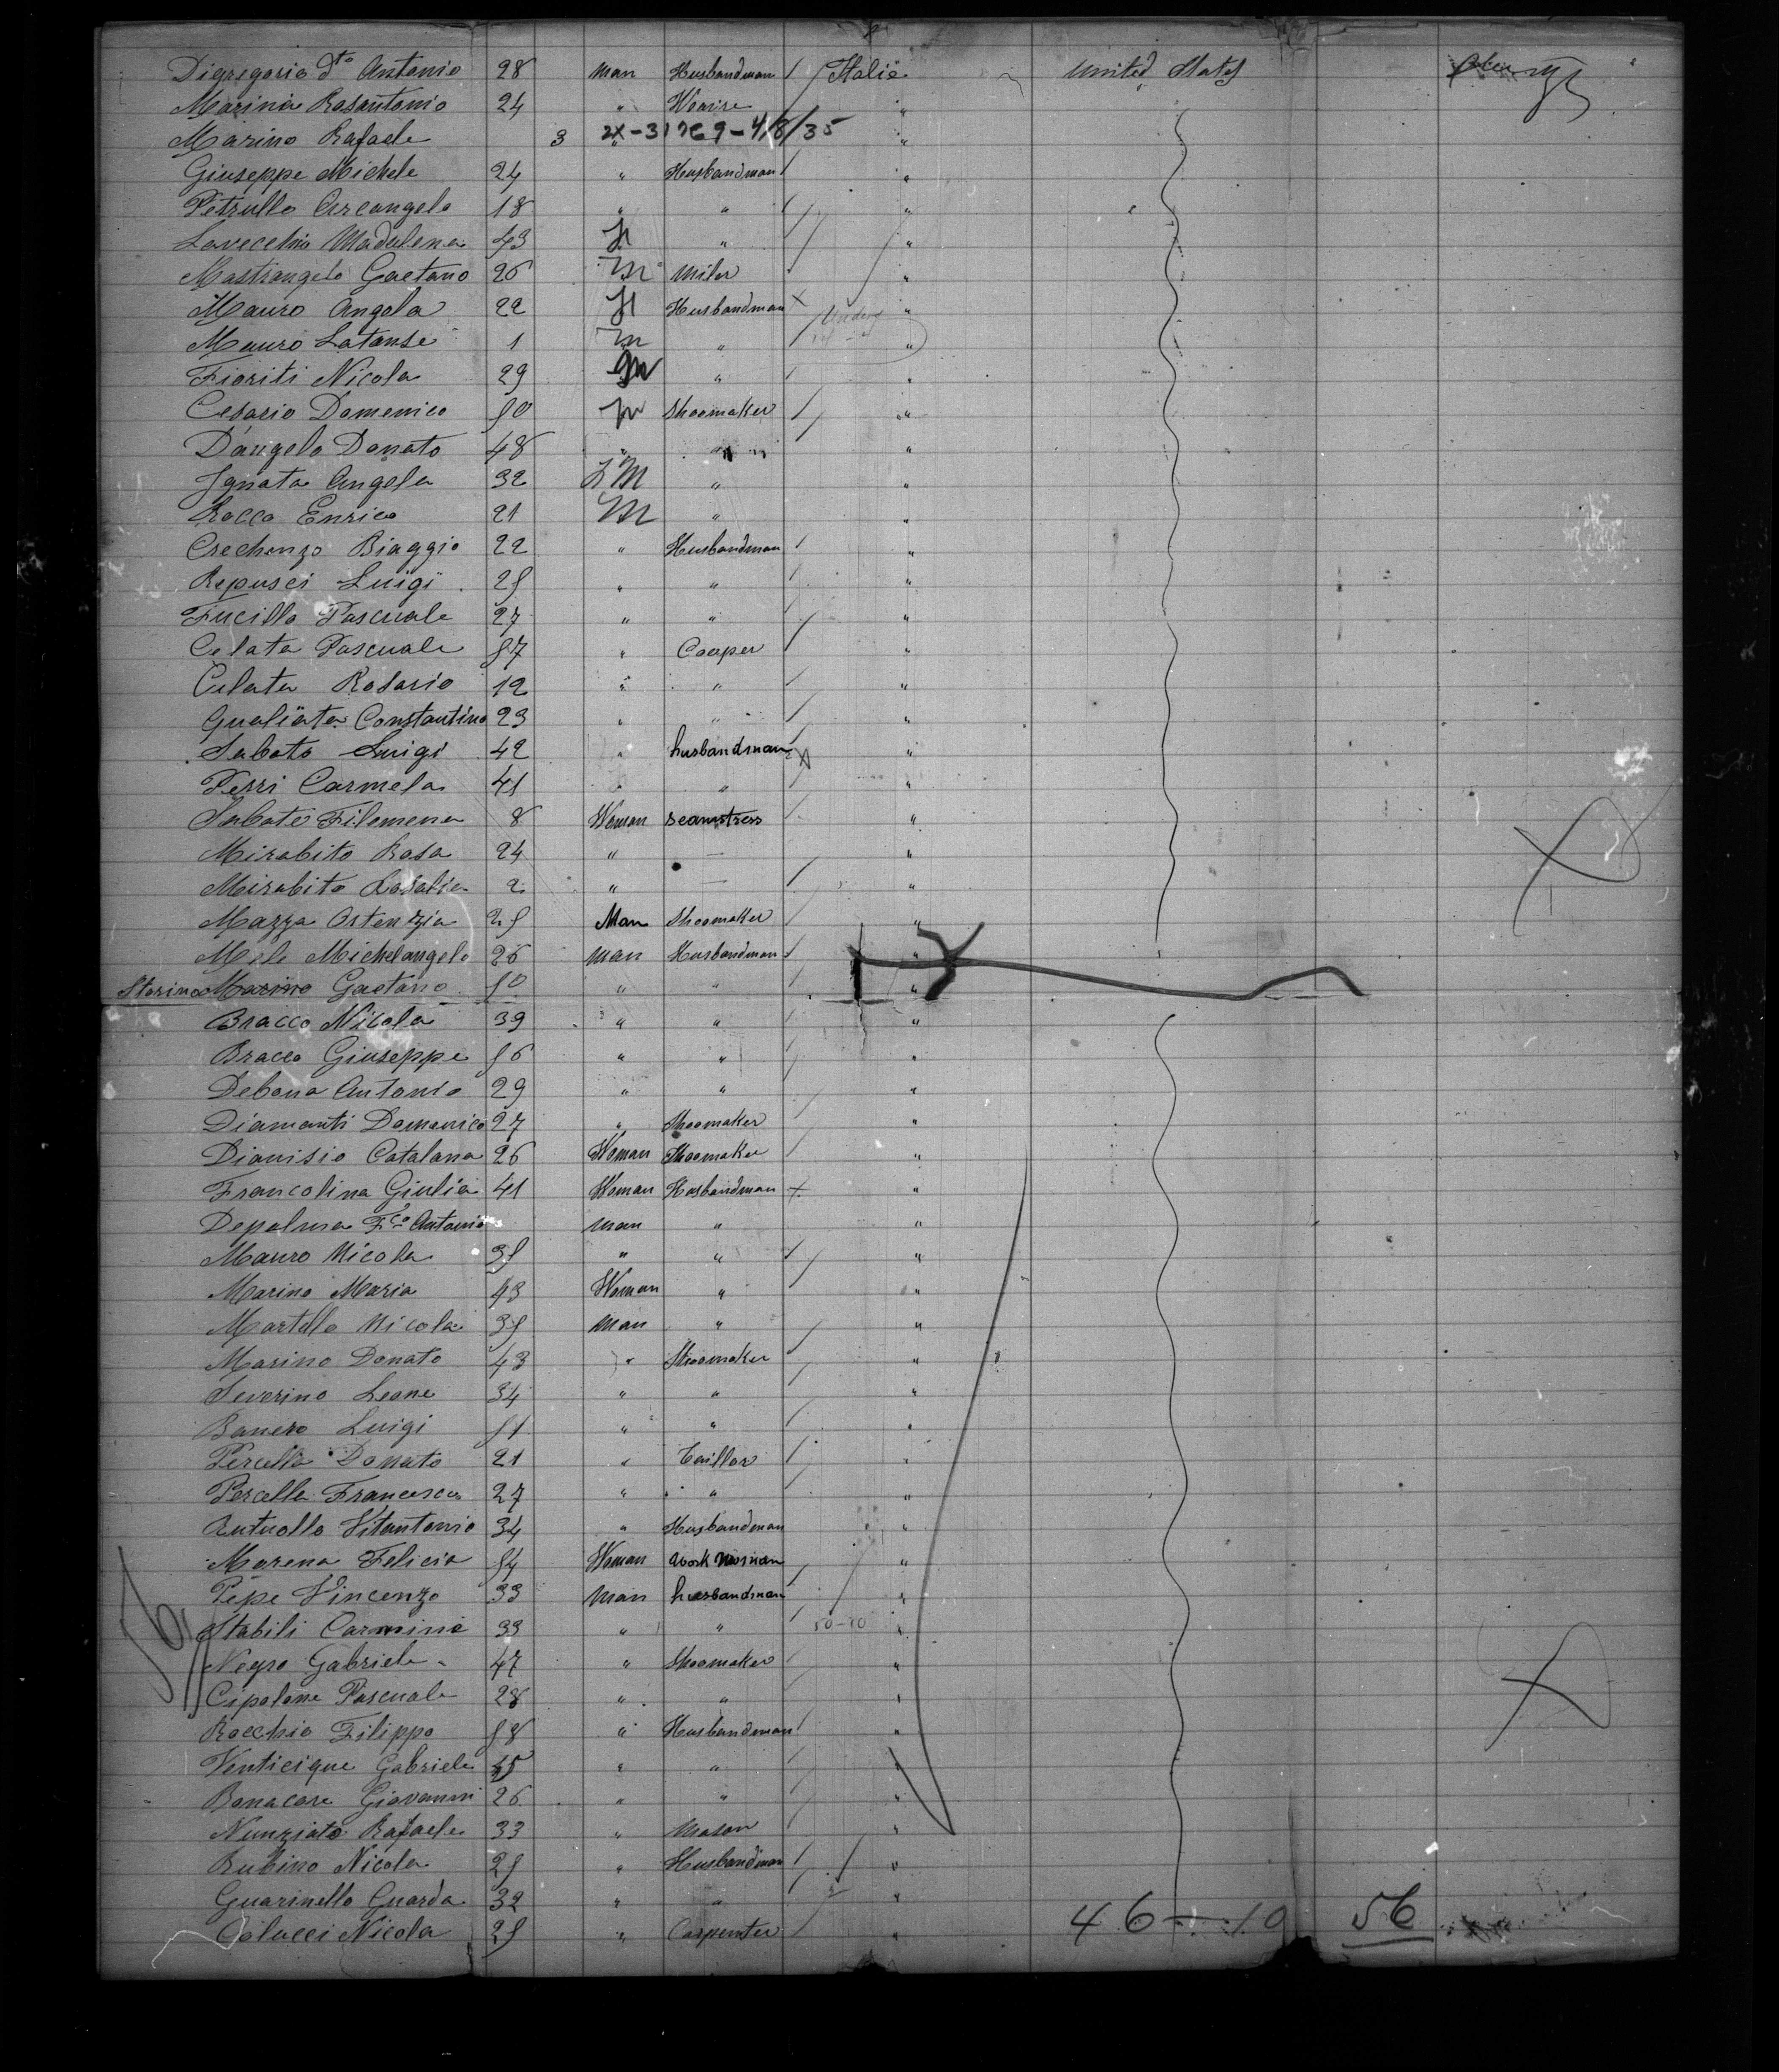 Digregorio dto Antonio 28 man Husbandman Italie United States
Marinia Rosantonio 24 "
Marino Rafaele 3 " 2X-31769-4/8/35 "
Giuseppe Michele 24 " Husbandman "
Petrullo Arcangelo 18 " " "
Lavecchia Madalena 43 " "
Mastrangelo Gaetano 26 m Miler "
Mauro Angela 22 Husbandman "
Mauro 1 m " "
Fioriti Nicola 29 m " "
Cesario Domenico 50 m Shoomaker "
D'angelo Donato 48 " " "
Ignata Angela 32 M " "
Rocco Enrico 21 M " "
Crechenzo Biaggio 22 " Husbandman "
Repusci Luigi 25 " " "
Fucillo Pascuale 27 " " "
Celata Pascuale 57 " Cooper "
Culata Rosario 12 " " "
Gualiata Constantino 23 " " "
Sabato Luigi 42 " husbandman "
Perri Carmela 41 " " "
Sabato Filomena 8 Woman seamstress "
Mirabito Rosa 24 " — "
Mirabito Rosalia 2 " — "
Mazza Ortenzia 25 Man Shoomaker "
Mele Michelangelo 26 man Husbandman "
Starino Marino Gaetano 50 " " "
Bracco Nicola 39 " " "
Bracco Giuseppe 56 " " "
Debona Antonio 29 " " "
Diamanti Domenico 27 " Shoomaker "
Dionisio Catalana 26 Woman Shoomaker "
Francolina Giulia 41 Woman Husbandman "
Depalma Fco Antonio man " "
Mauro Nicola 35 " " "
Marino Maria 43 Woman " "
Martello Nicola 35 man " "
Marino Donato 43 " Shoomaker "
Severino Leone 34 " " "
Banero Luigi 51 " " "
Percella Donato 21 " Taillor "
Percella Francesca 27 " " "
Antuollo Vitantonio 34 " Husbandman "
Morena Felicia 54 Woman work woman "
Pepe Vincenzo 33 man husbandman "
Stabili Carmine 33 " " 50-10 "
Negro Gabriele 47 " Shoomaker "
Cipolone Pascuale 28 " " "
Rocchio Filippo 58 " Husbandman "
Venticique Gabriele 45 " " "
Bonacore Giovanni 26 " " "
Nunziato Rafaele 33 " Mason "
Rubino Nicola 25 " Husbandman "
Guarinello Guarda 32 " " "
Colucci Nicola 25 " Carpenter " 46-10 56